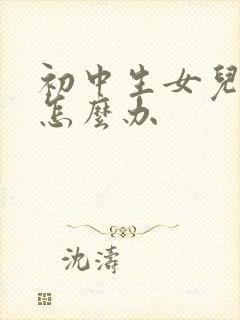 初中生女兒
怎麼办
沈濤